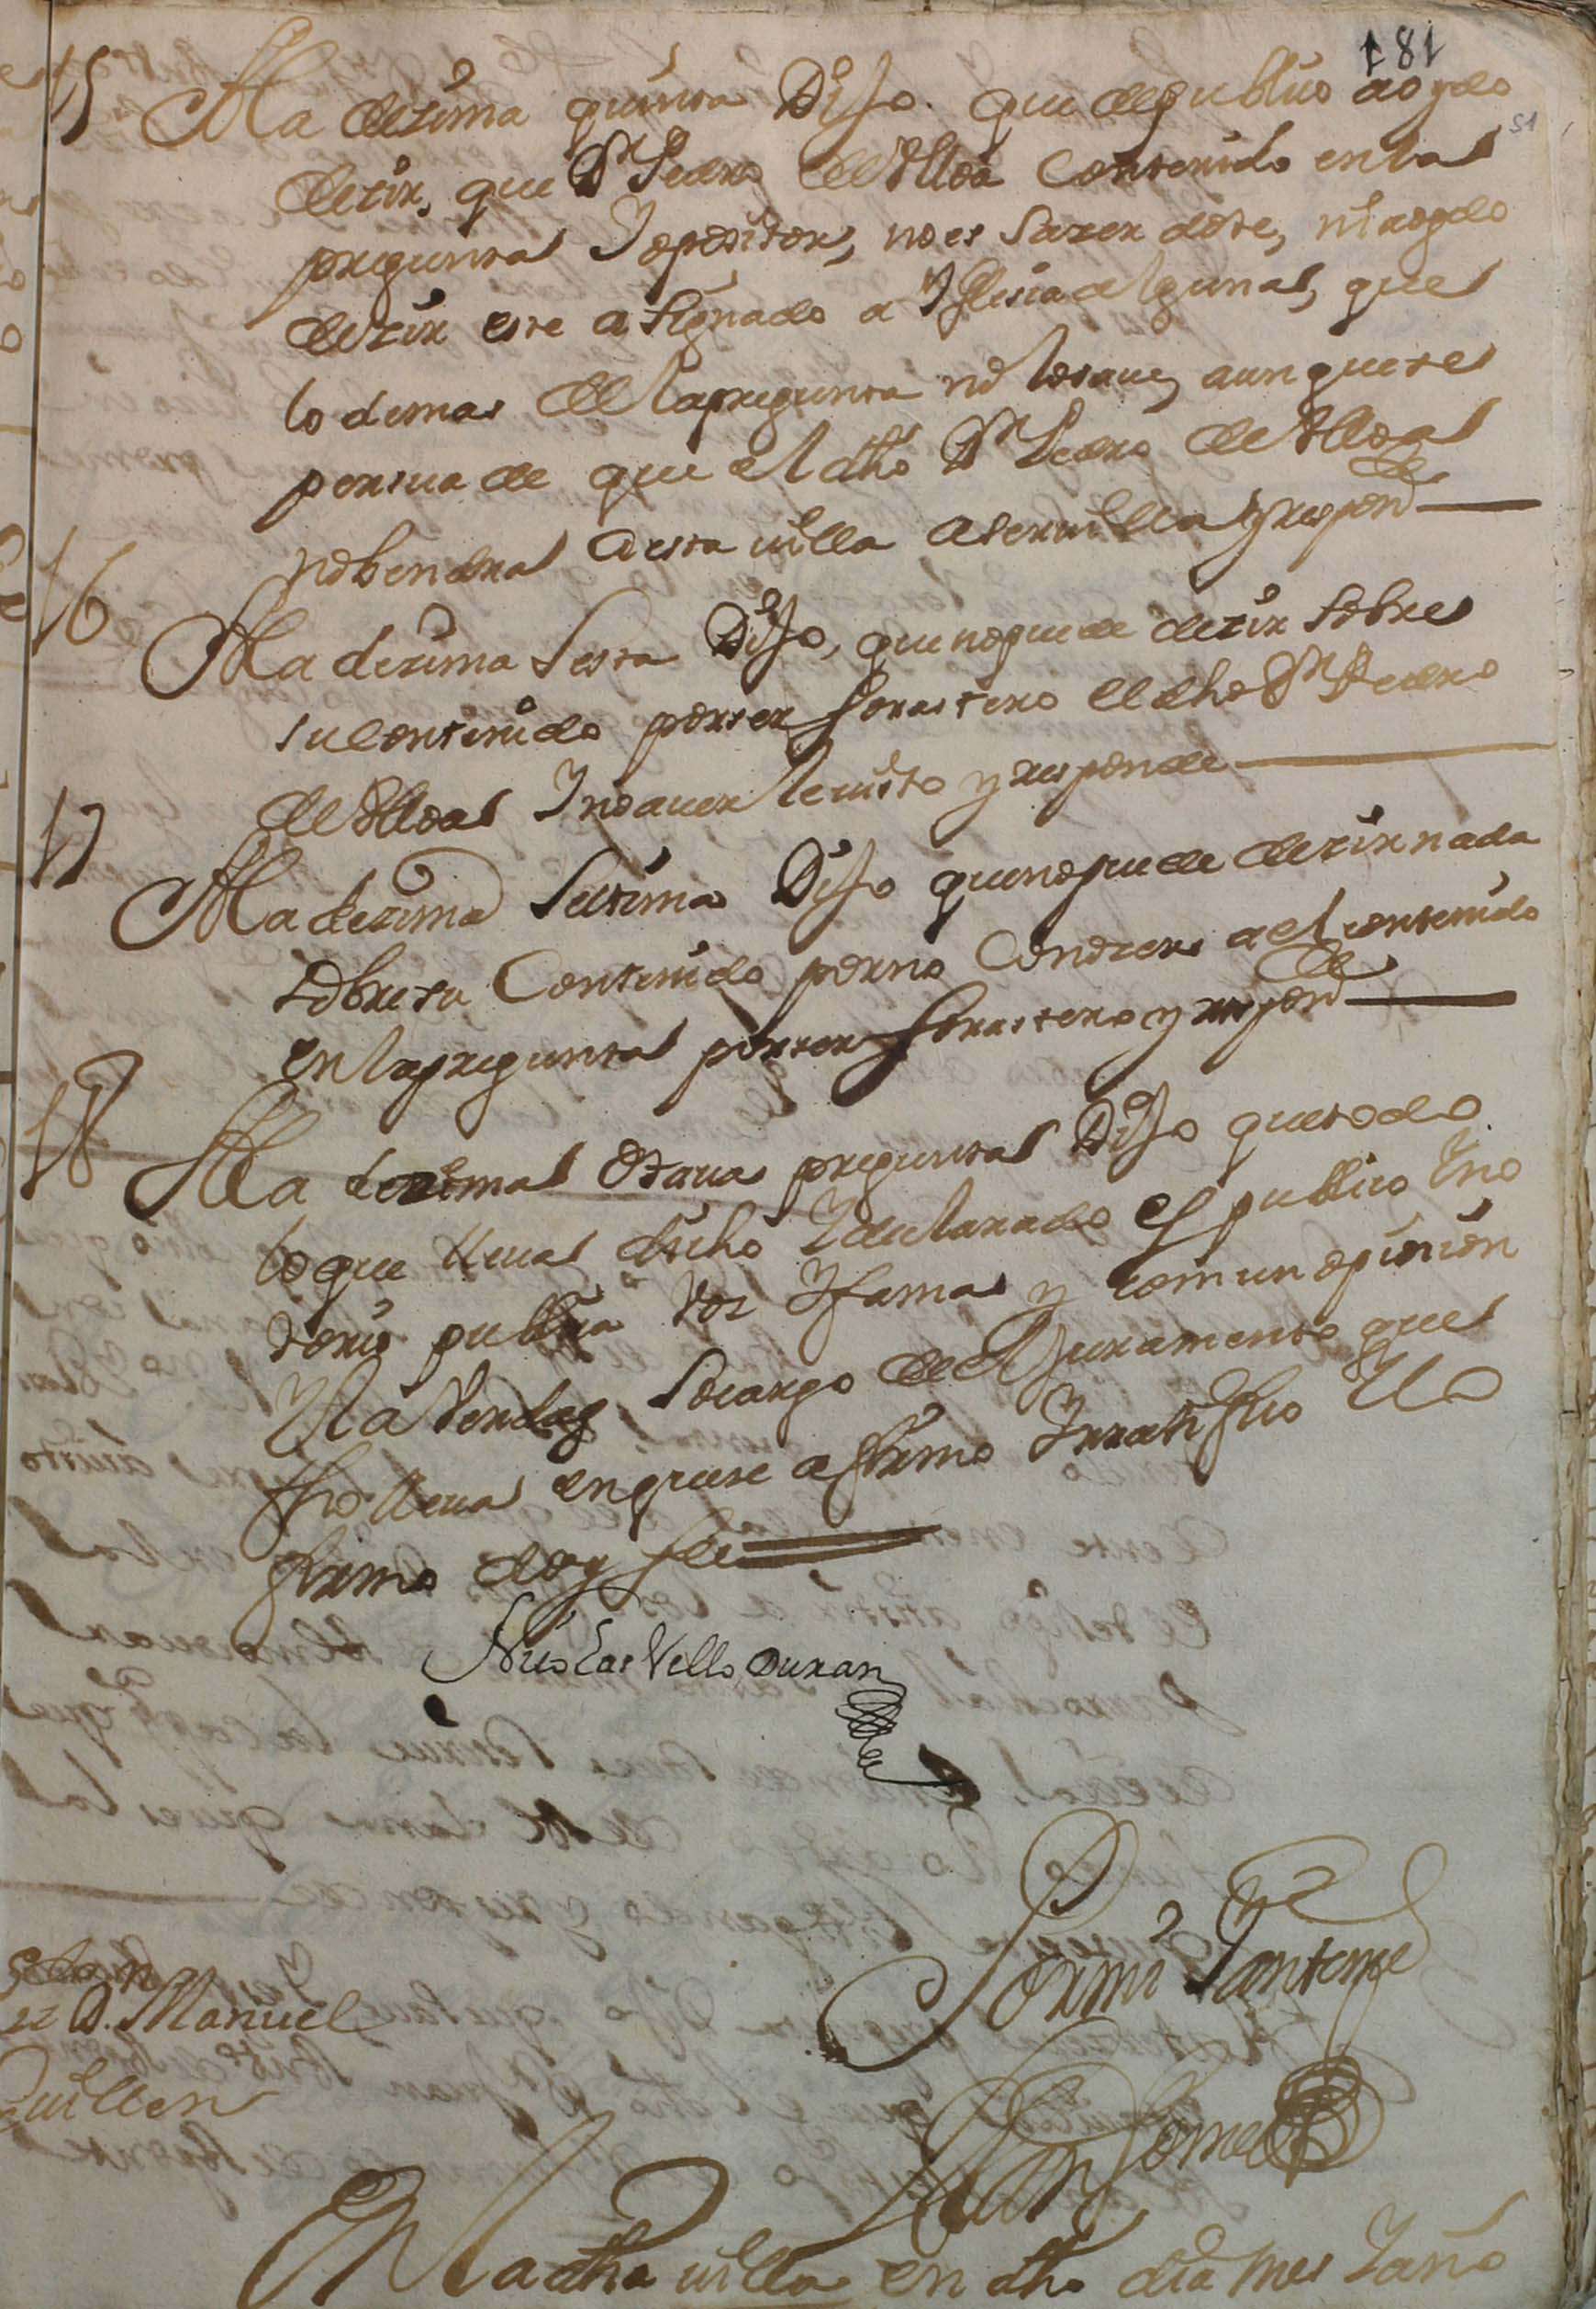 181
51
15 A la dezima quinta Dijo que de publico a oydo
dezir, que Dn Pedro de Ulloa Contenido en la
pregunta Y opositor, no es Sazerdote, ni a oydo
dezir este asignado a Yglesia alguna, que
lo demas de la pregunta no lo save, aunque se
persuade que el dho Dn Pedro de Ulloa
no bendra a esta villa a servilla y responde
16 A la dezima Sesta Dijo, que no puede dezir Sobre
su contenido por ser forastero el dho Dn Pedro
de Ulloa Y no aver le visto y responde
17 A la dezima Septima Dijo que no puede dezir nada
sobre su Contenido por no Conozer a el contenido
en la pregunta por ser forastero y responde
18 A la dezima Otava pregunta Dijo que todo
lo que lleva dicho Y declarado es publico Y no
torio publica voz Y fama y comun opinion
Y la Verdad So cargo de el Juramento que
fho lleva en que se afirmo Y rratifico Y lo
firmo doy fee
Nicolas Vello Duran
Por mi Y ante mi
Juan Gomez
D. Manuel
Guillen
En la dha villa en dho dia mes Y año